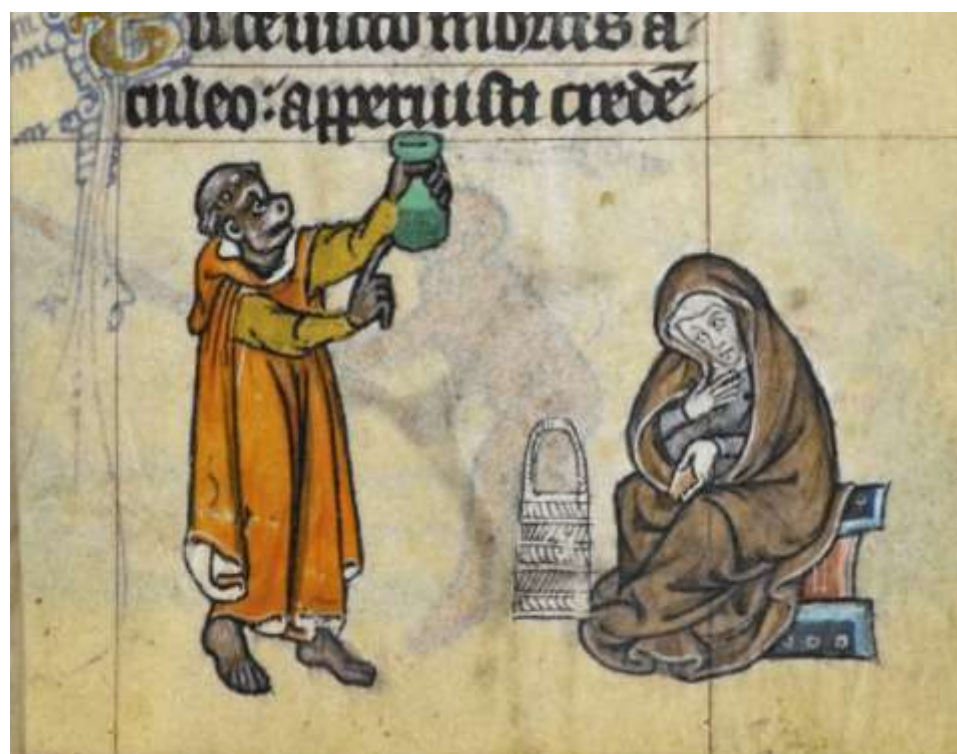 Tu deuicto mortis a
culeo : apperuisti credē